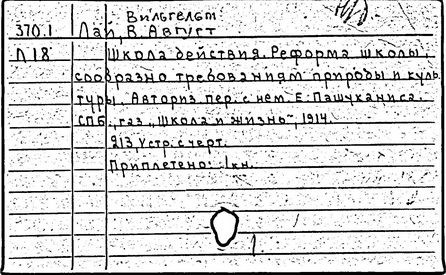 Вильгельм
370.1 Лай, В. Август
Л18 Школа действия. Реформа школы,
сообразно требованиям природы и куль
туры. Авториз. пер. с нем. Е. Пашуканиса.
СПБ., газ. „Школа и жизнь", 1914.
стр. с черт.
Приплетено: 1 кн.